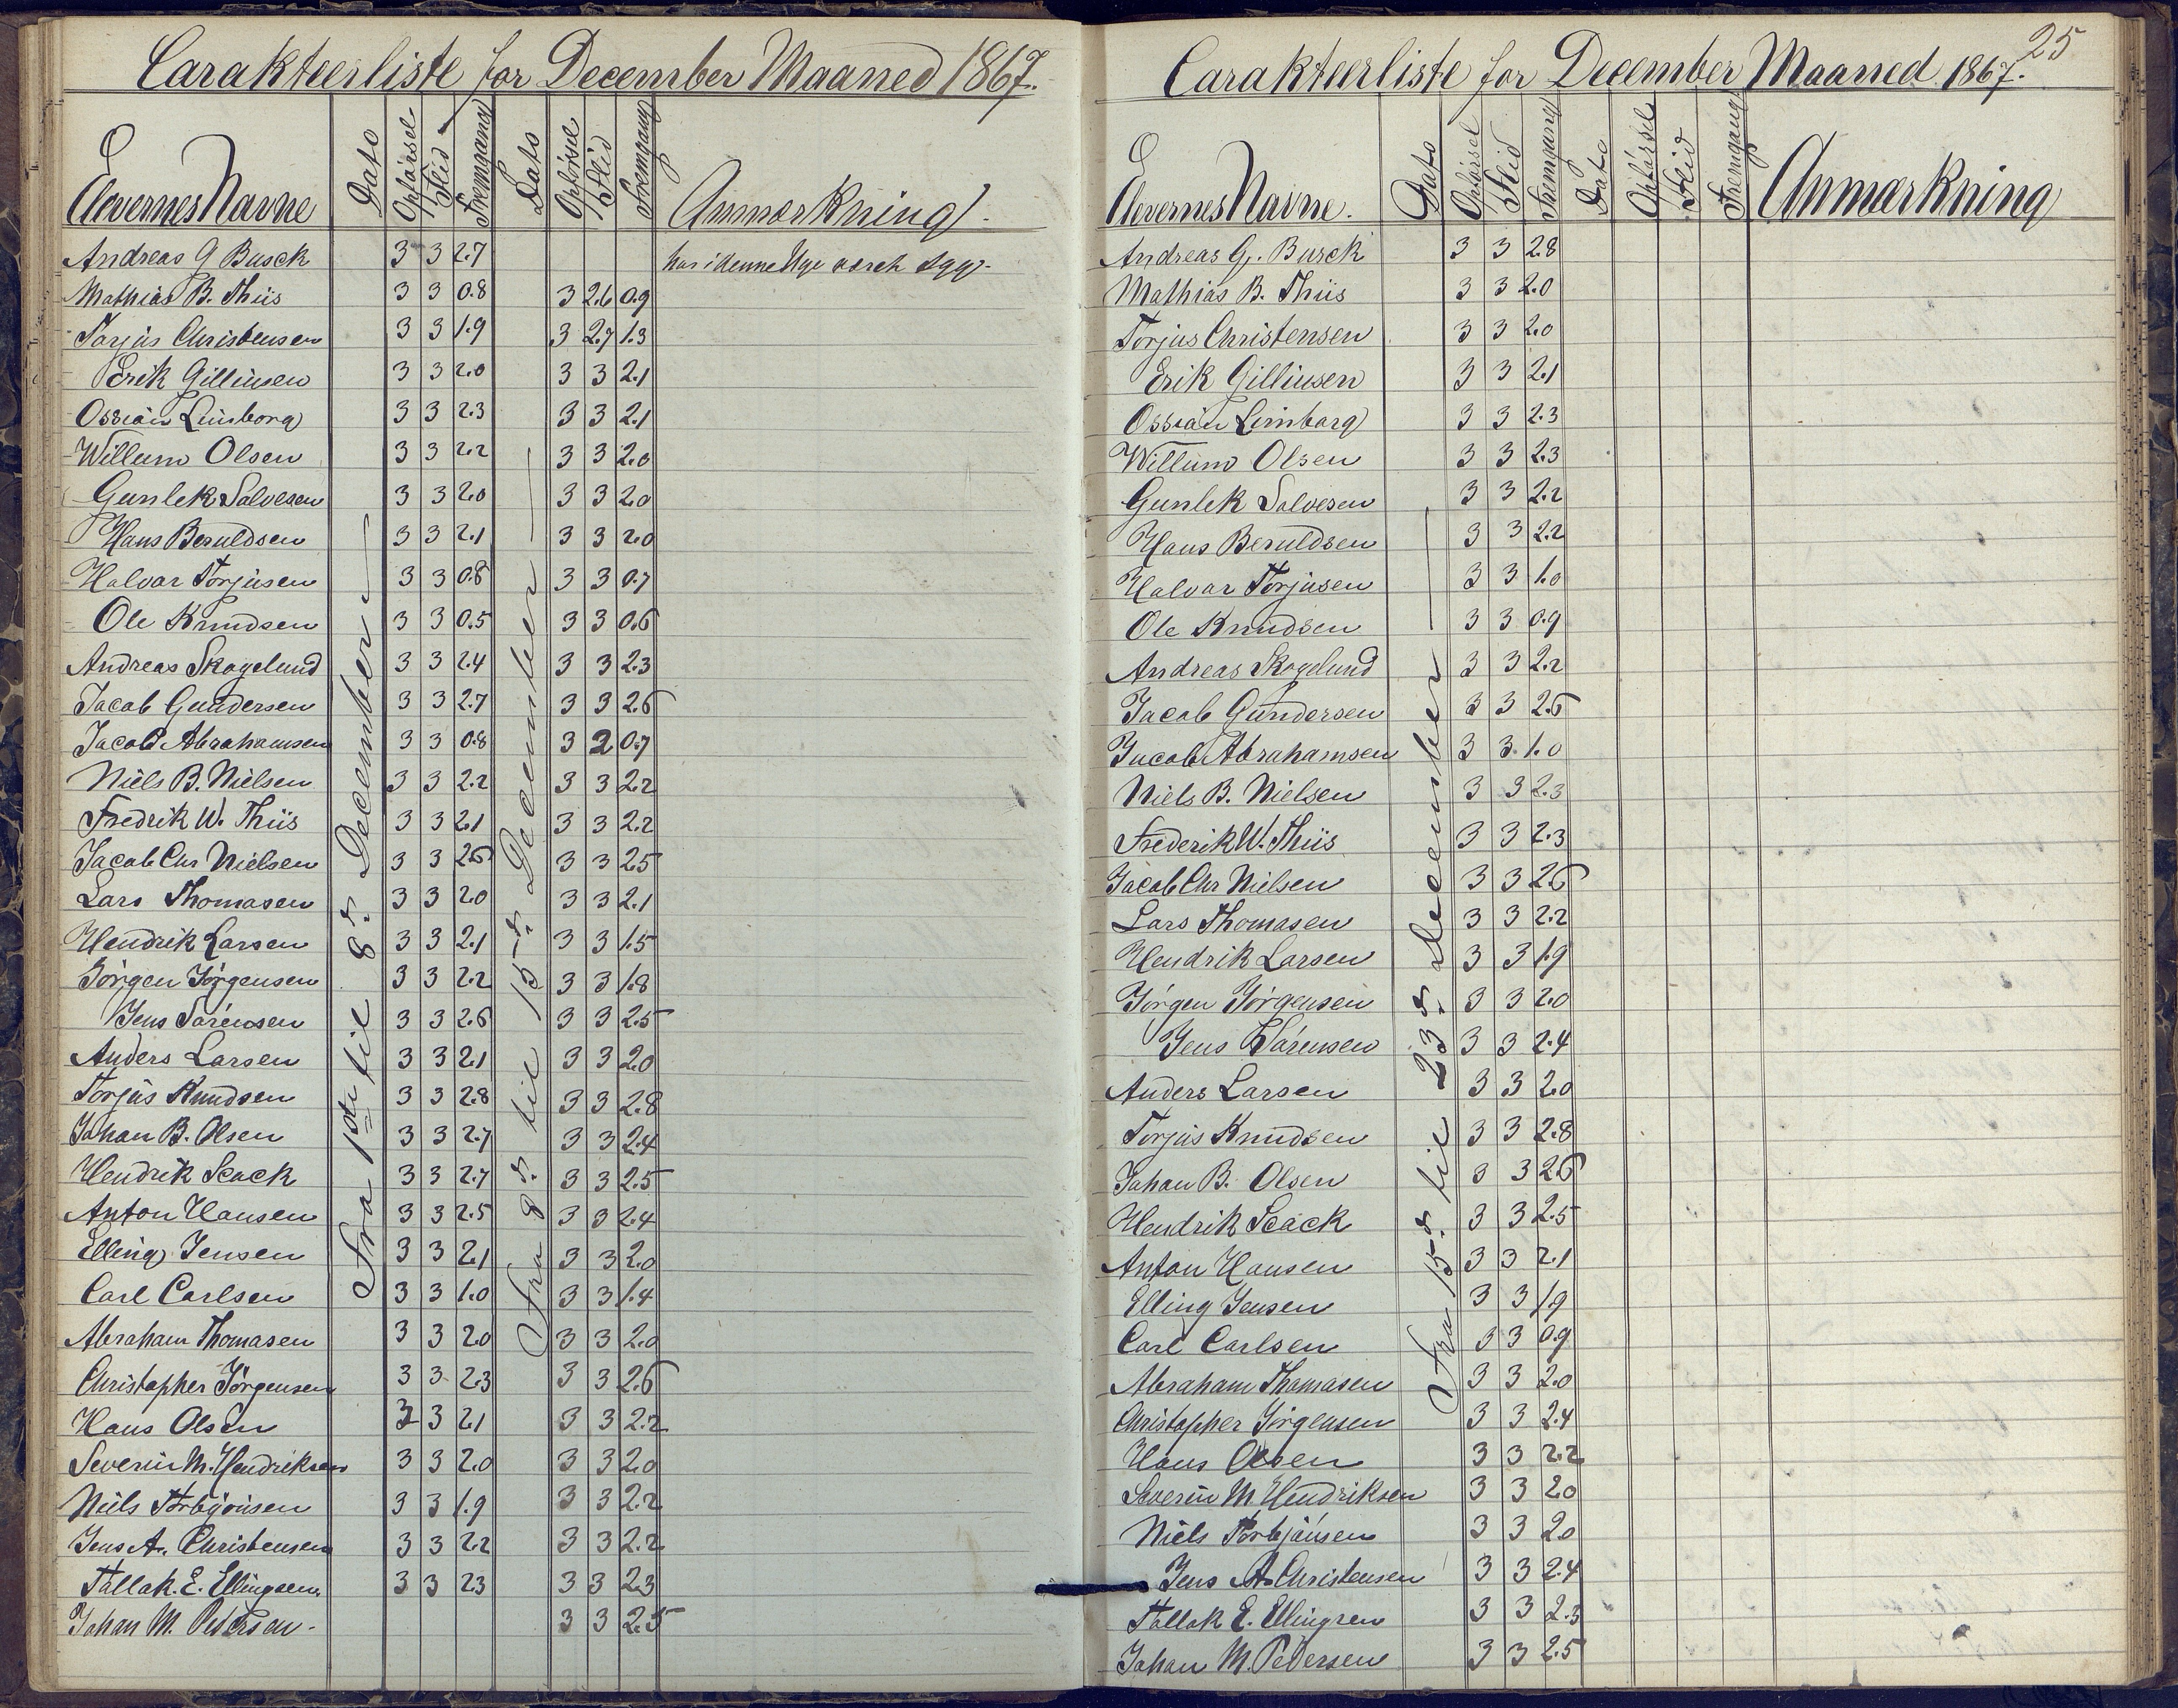 Carakteerliste for December Maaned 1867.
Elevernes Navne Dato Opførsel Flid Fremgang Dato Opførsel Flid Fremgang Anmærkning.
Fra 1ste til 8de December
Fra 8de til 15de December
Andreas G Busck 3 3 2.7 har i denne Uge været syg.
Mathias B. Thiis 3 3 0.8 3 2.6 0.9
Torjus Christensen 3 3 1.9 3 2.7 1.3
Erik Gilliusen 3 3 2.0 3 3 2.1
Ossian Limborg 3 3 2.3 3 3 2.1
Willum Olsen 3 3 2.2 3 3 2.0
Gunlek Salvesen 3 3 2.0 3 3 2.0
Hans Beruldsen 3 3 2.1 3 3 2.0
Halvor Torjusen 3 3 0.8 3 3 0.7
Ole Knudsen 3 3 0.5 3 3 0.6
Andreas Skogelund 3 3 2.4 3 3 2.3
Jacob Gundersen 3 3 2.7 3 3 2.6
Jacob Abrahamsen 3 3 0.8 3 2 0.7
Niels B. Nielsen 3 3 2.2 3 3 2.2
Fredrik W. Thiis 3 3 2.1 3 3 2.2
Jacob Chr Nielsen 3 3 2.6 3 3 2.5
Lars Thomasen 3 3 2.0 3 3 2.1
Hendrik Larsen 3 3 2.1 3 3 1.5
Jörgen Jörgensen 3 3 2.2 3 3 1.8
Jens Sörensen 3 3 2.6 3 3 2.5
Anders Larsen 3 3 2.1 3 3 2.0
Torjus Knudsen 3 3 2.8 3 3 2.8
Johan B. Olsen 3 3 2.7 3 3 2.4
Hendrik Seack 3 3 2.7 3 3 2.5
Anton Hansen 3 3 2.5 3 3 2.4
Elling Jensen 3 3 2.1 3 3 2.0
Carl Carlsen 3 3 1.0 3 3 1.4
Abraham Thomasen 3 3 2.0 3 3 2.0
Christopher Jörgensen 3 3 2.3 3 3 2.6
Hans Olsen 3 3 2.1 3 3 2.2
Severin M. Hendriksen 3 3 2.0 3 3 2.0
Niels Torbjönsen 3 3 1.9 3 3 2.2
Jens A. Christensen 3 3 2.2 3 3 2.2
Tallak. E. Ellingsen. 3 3 2.3 3 3 2.3
Johan M. Pedersen. 3 3 2.5
25
Carakteerliste for December Maaned 1867.
Elevernes Navne. Dato Opførsel Flid Fremgang Dato Opførsel Flid Fremgang Anmærkning
Fra 15de til 23de December
Andreas G. Busck 3 3 2.8
Mathias B. Thiis 3 3 2.0
Torjus Christensen 3 3 2.0
Erik Gilliusen 3 3 2.1
Ossian Limborg 3 3 2.3
Willum Olsen 3 3 2.3
Gunlek Salvesen 3 3 2.2
Hans Beruldsen 3 3 2.2
Halvor Torjusen 3 3 1.0
Ole Knudsen 3 3 0.9
Andreas Skogelund 3 3 2.2
Jacob Gundersen 3 3 2.6
Jacob Abrahamsen 3 3 1.0
Niels B. Nielsen 3 3 2.3
Frederik W. Thiis 3 3 2.3
Jacob Chr Nielsen 3 3 2.6
Lars Thomasen 3 3 2.2
Hendrik Larsen 3 3 1.9
Jörgen Jörgensen 3 3 2.0
Jens Sörensen 3 3 2.4
Anders Larsen 3 3 2.0
Torjus Knudsen 3 3 2.8
Johan B. Olsen 3 3 2.6
Hendrik Seack 3 3 2.5
Anton Hansen 3 3 2.1
Elling Jensen 3 3 1.9
Carl Carlsen 3 3 0.9
Abraham Thomasen 3 3 2.0
Christopher Jörgensen 3 3 2.4
Hans Olsen 3 3 2.2
Severin M Hendriksen 3 3 2.0
Niels Torbjönsen 3 3 2.0
Jens A. Christensen 3 3 2.4
Tallak E. Ellingsen 3 3 2.3
Johan M. Pedersen 3 3 2.5